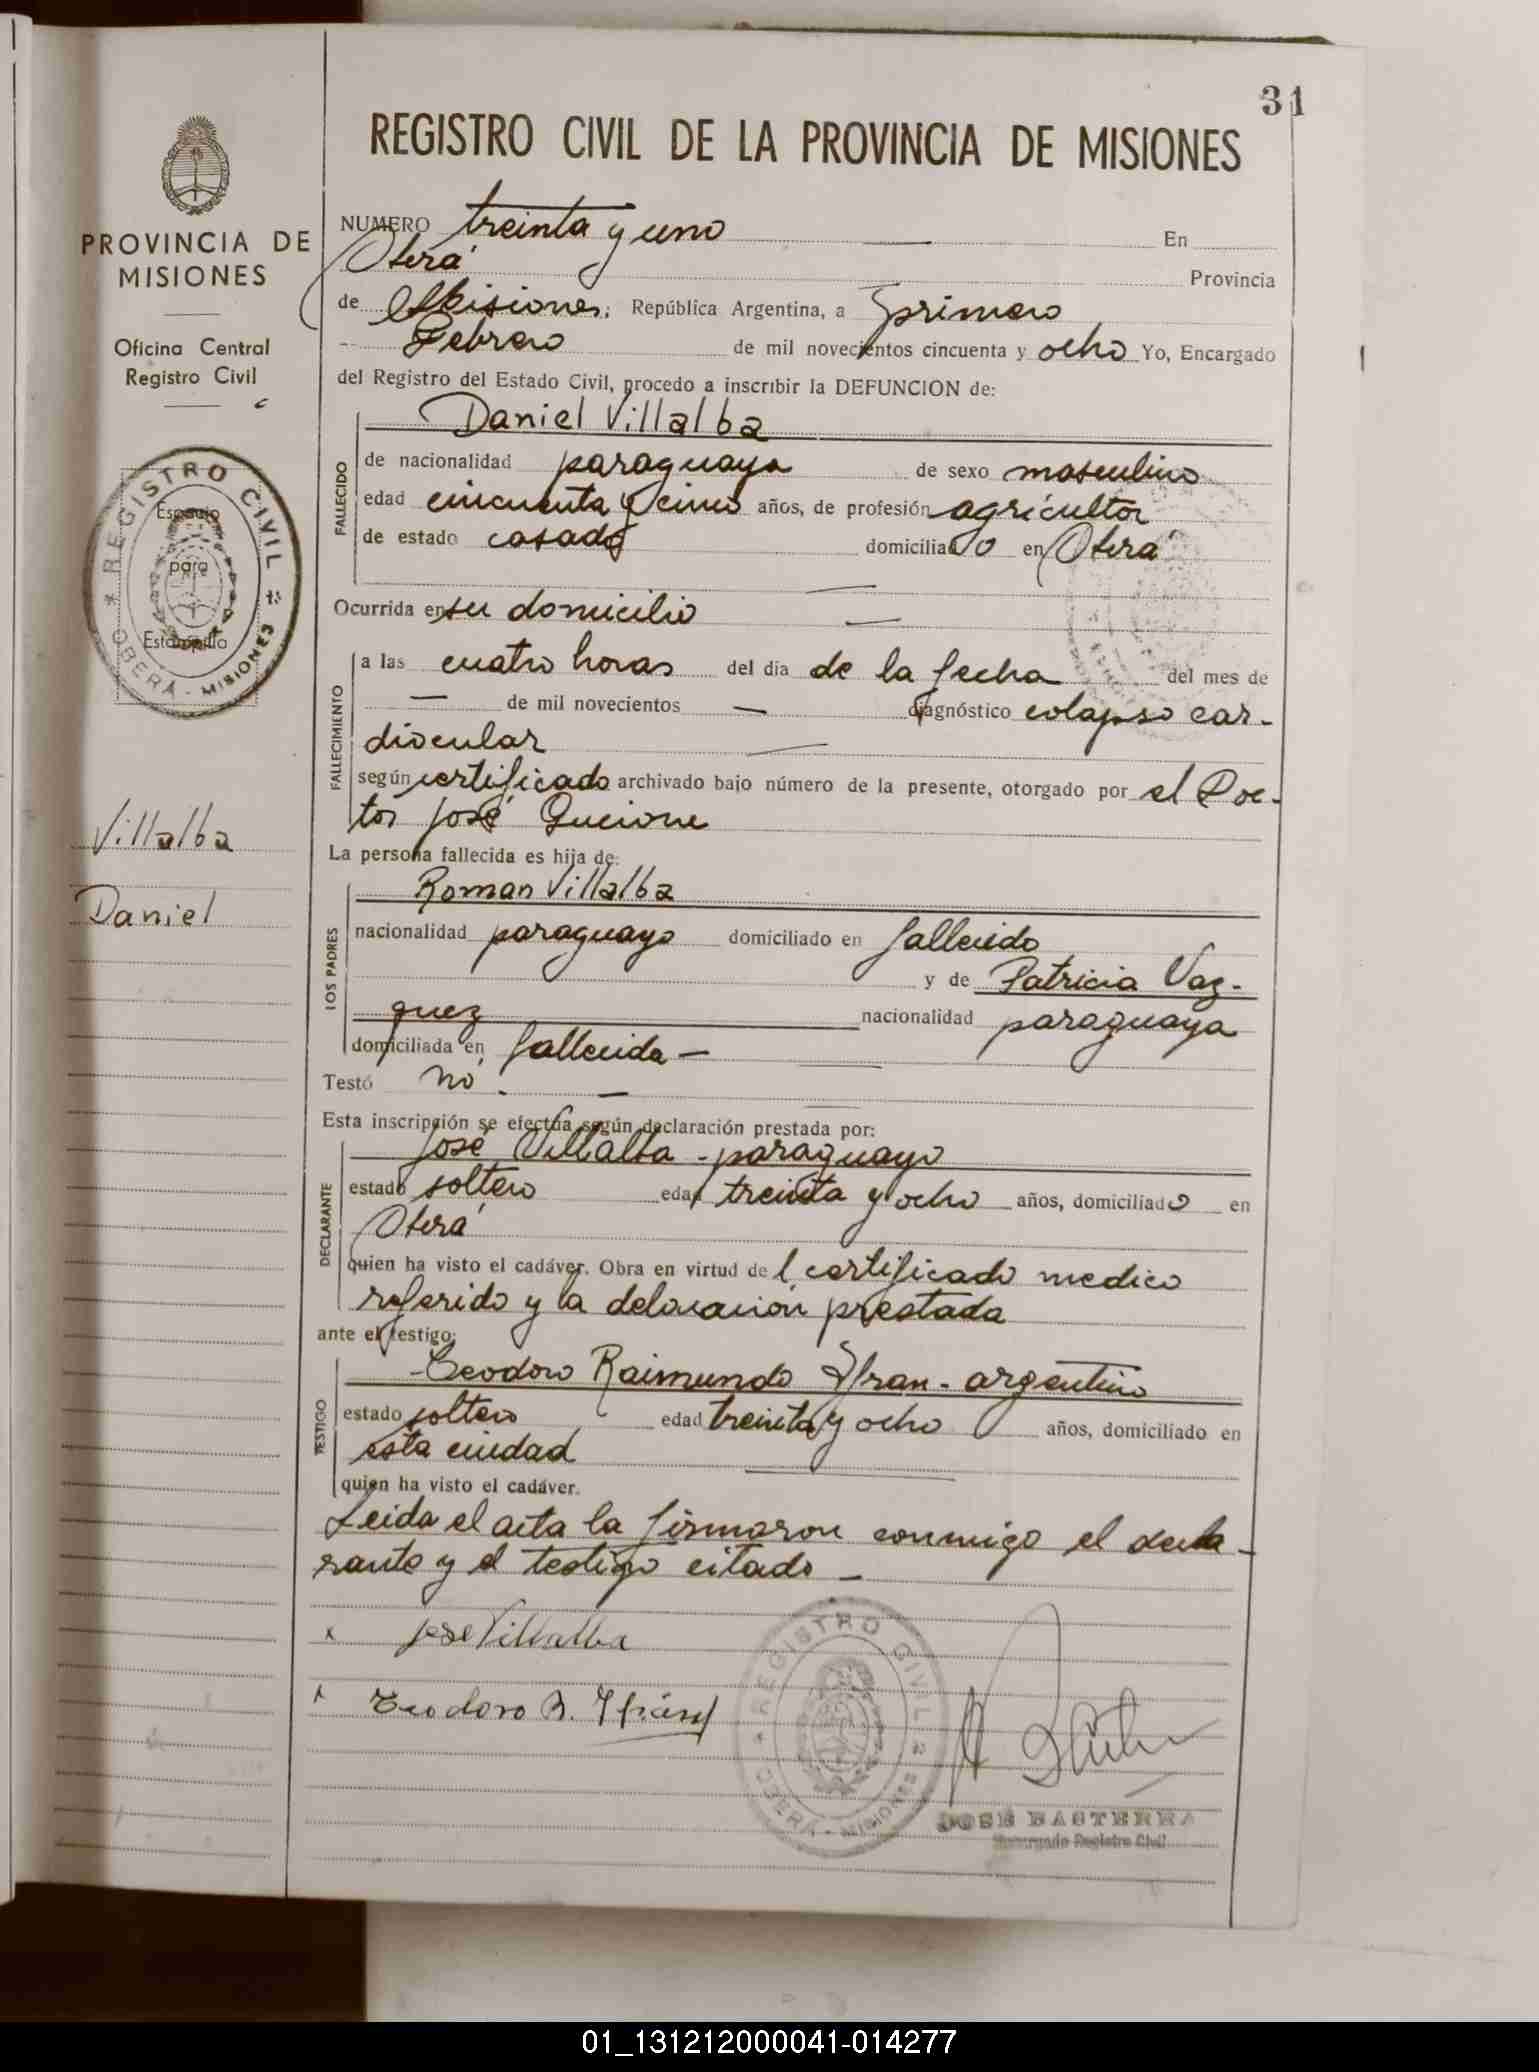 31
REGISTRO CIVIL DE LA PROVINCIA DE MISIONES
PROVINCIA DE
MISIONES
Oficina Central
Registro Civil
REGISTRO CIVIL
OBERÁ - MISIONES
Espacio
para
Estampilla
Villalba
Daniel
NUMERO treinta y uno En
Oberá Provincia
de Misiones; República Argentina, a primero
Febrero de mil novecientos cincuenta y ocho Yo, Encargado
del Registro del Estado Civil, procedo a inscribir la DEFUNCION de:
FALLECIDO
Daniel Villalba
de nacionalidad paraguaya de sexo masculino
edad cincuenta y cinco años, de profesión agricultor
de estado casado domiciliado en Oberá
Ocurrida en su domicilio
FALLECIMIENTO
a las cuatro horas del dia de la fecha del mes de
de mil novecientos diagnóstico colapso car-
diocular
según certificado archivado bajo número de la presente, otorgado por el Doc-
tor José Gucione
La persona fallecida es hija de:
LOS PADRES
Roman Villalba
nacionalidad paraguayo domiciliado en fallecido
y de Patricia Vaz-
quez nacionalidad paraguaya
domiciliada en fallecida
Testó no
Esta inscripción se efectúa según declaración prestada por:
DECLARANTE
José Villalba - paraguayo
estado soltero edad treinta y ocho años, domiciliado en
Oberá
quien ha visto el cadáver. Obra en virtud del certificado medico
referido y la delaración prestada
ante el testigo:
TESTIGO
Teodoro Raimundo Yfran - argentino
estado soltero edad treinta y ocho años, domiciliado en
esta ciudad
quien ha visto el cadáver.
Leida el acta la firmaron conmigo el decla-
rante y el testigo citado
x Jose Villalba
x Teodoro R. Yfrán
REGISTRO CIVIL
OBERÁ - MISIONES
JOSÉ BASTERRA
Encargado Registro Civil
01_131212000041-014277